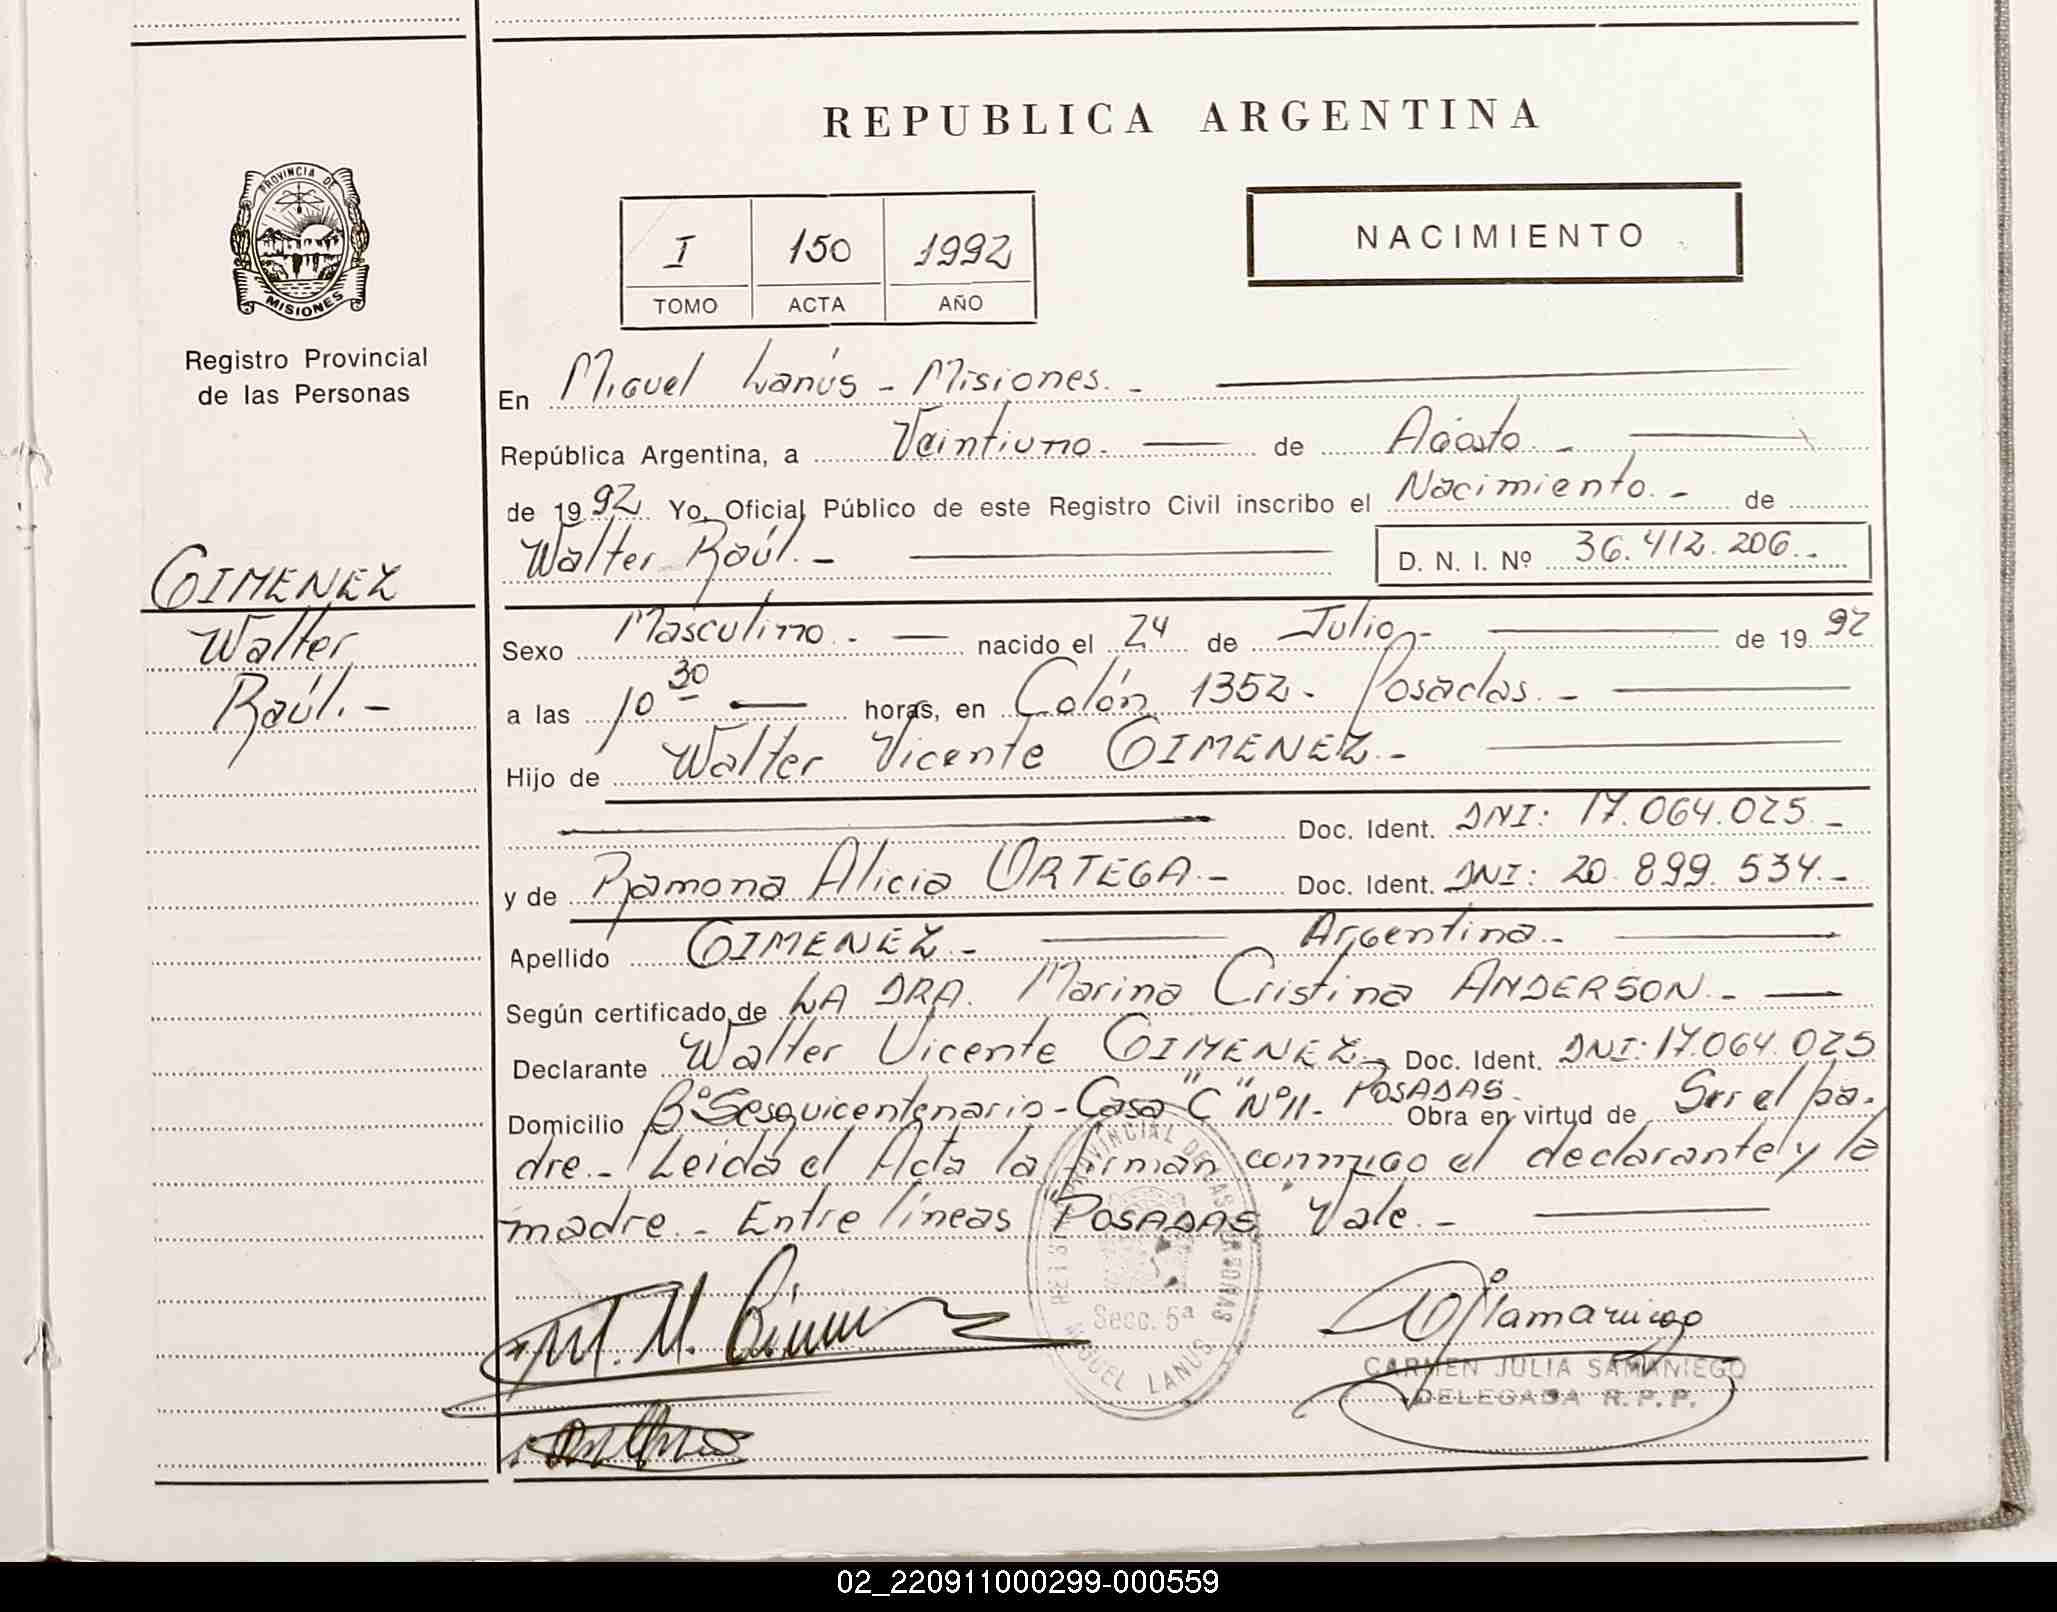 REPUBLICA ARGENTINA
PROVINCIA DE
MISIONES
Registro Provincial
de las Personas
I 150 1992
TOMO ACTA AÑO
NACIMIENTO
En Miguel Lanús - Misiones. -
República Argentina, a Veintiuno. de Agosto. -
de 1992 Yo, Oficial Público de este Registro Civil inscribo el Nacimiento. - de
Walter Raúl. - D. N. I. Nº 36.412.206. -
GIMENEZ
Walter
Raúl. -
Sexo Masculino. - nacido el 24 de Julio - de 1992
a las 10 30 horas, en Colón 1352 - Posadas. -
Hijo de Walter Vicente GIMENEZ. -
Doc. Ident. DNI: 17.064.025 -
y de Ramona Alicia ORTEGA. - Doc. Ident. DNI: 20.899.534. -
Apellido GIMENEZ - Argentina. -
Según certificado de LA DRA. Marina Cristina ANDERSON. -
Declarante Walter Vicente GIMENEZ - Doc. Ident. DNI: 17.064.025
Domicilio Bº Sesquicentenario - Casa "C" Nº 11 - POSADAS. Obra en virtud de Ser el pa-
dre. - Leida el Acta la firman conmigo el declarante y la
madre. - Entre líneas "POSADAS" Vale. -
REGISTRO PROVINCIAL DE LAS PERSONAS
Secc. 5ª
MIGUEL LANUS
CARMEN JULIA SAMANIEGO
DELEGADA R.P.P.
02_220911000299-000559